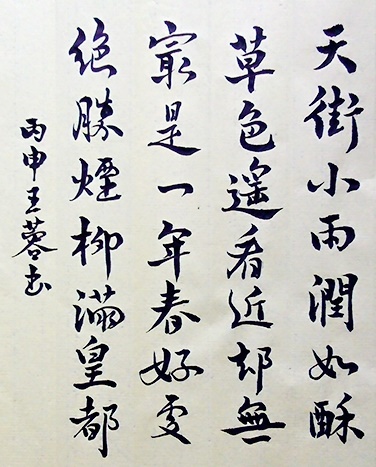 天街小雨潤如酥
草色遥看近却無
最是一年春好處
絶勝煙柳滿皇都
丙申王蓉书